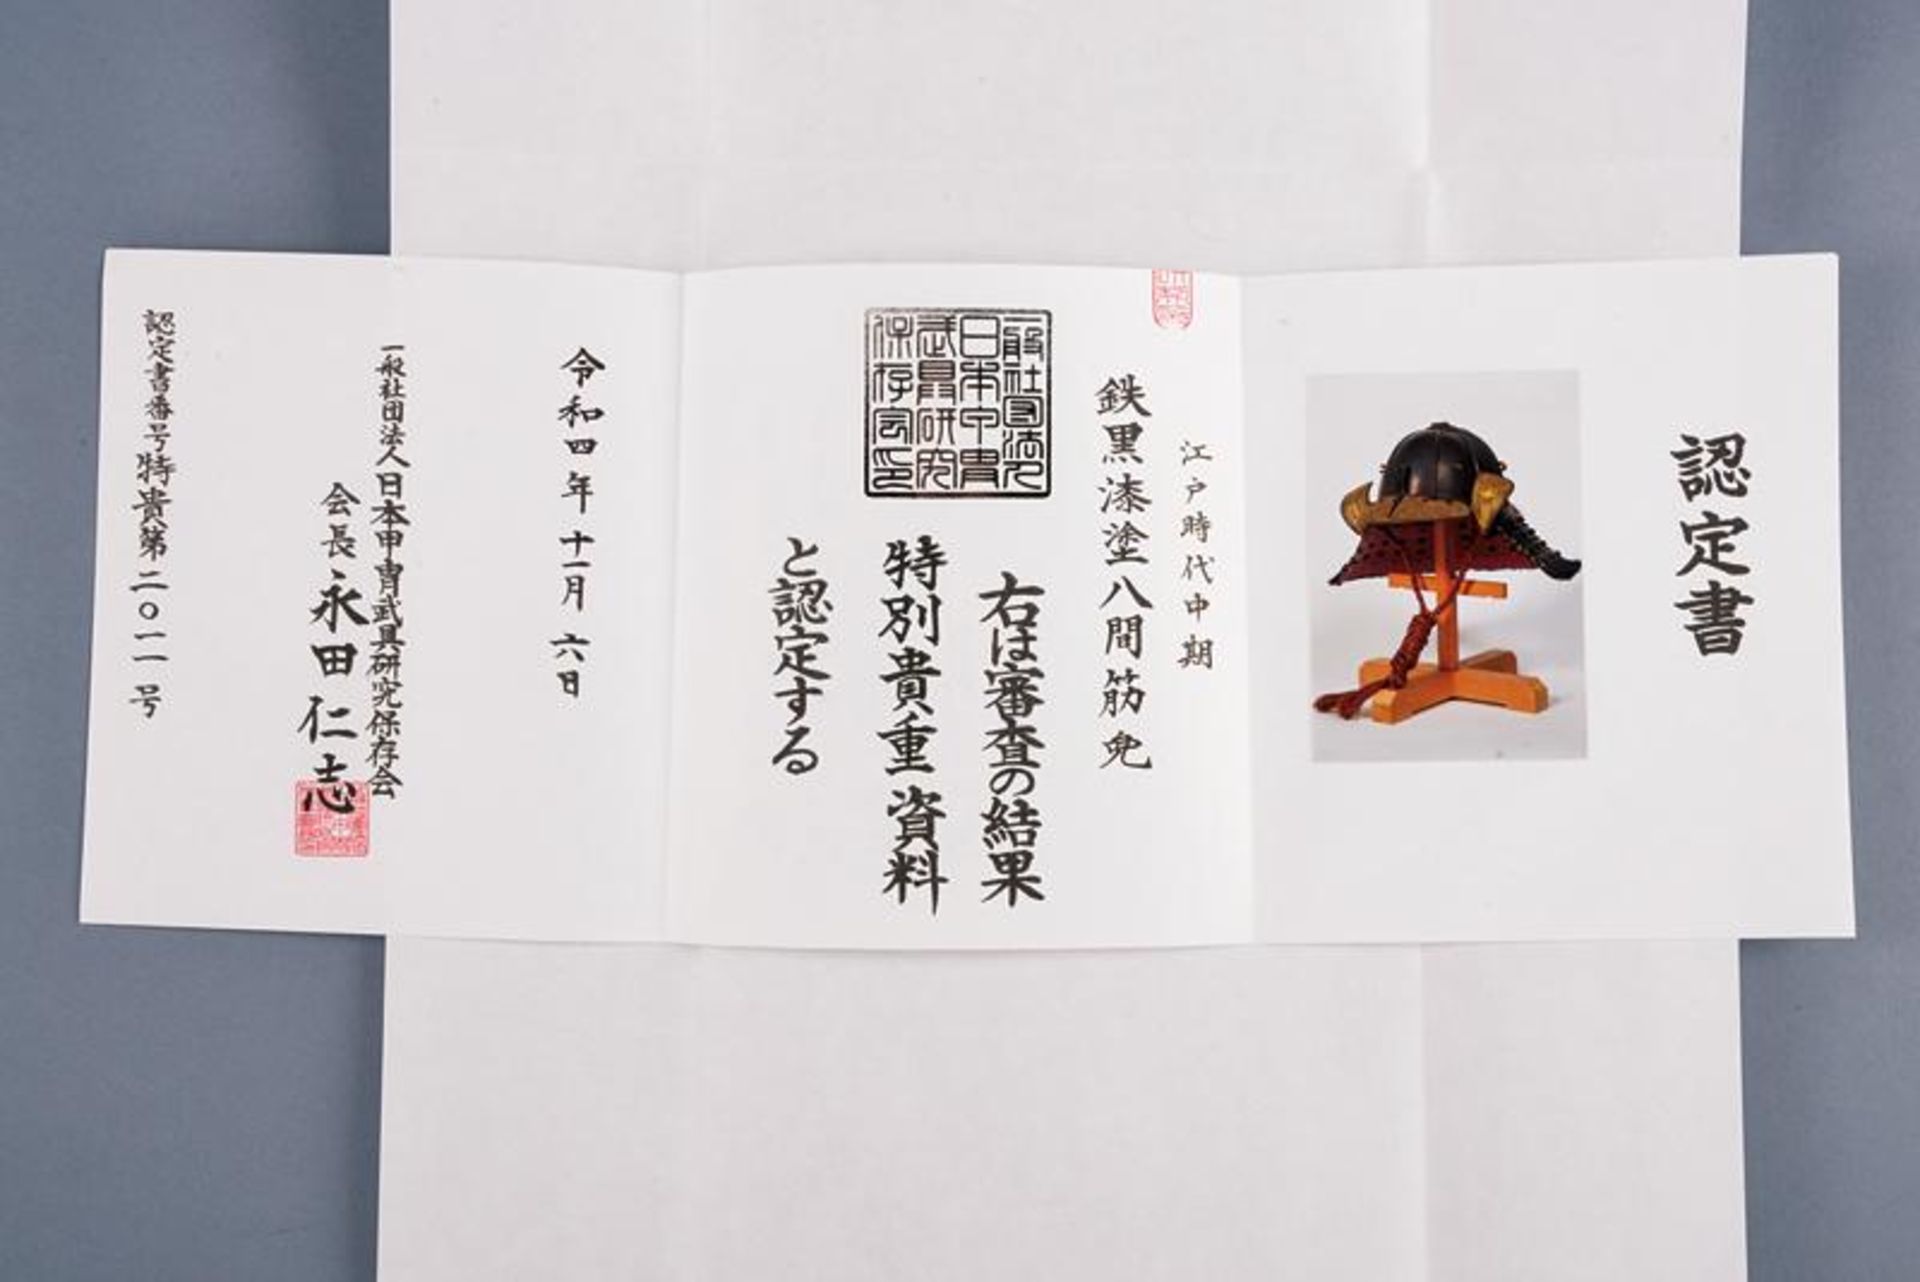 認定書
江戸時代中期
鉄黒漆塗八間筋兜
一般社団法人
日本甲冑
武具研究
保存会印
右は審査の結果
特別貴重資料
と認定する
令和四年十一月六日
一般社団法人日本甲冑武具研究保存会
会長永田仁志
認定書番号特貴第二〇一一号